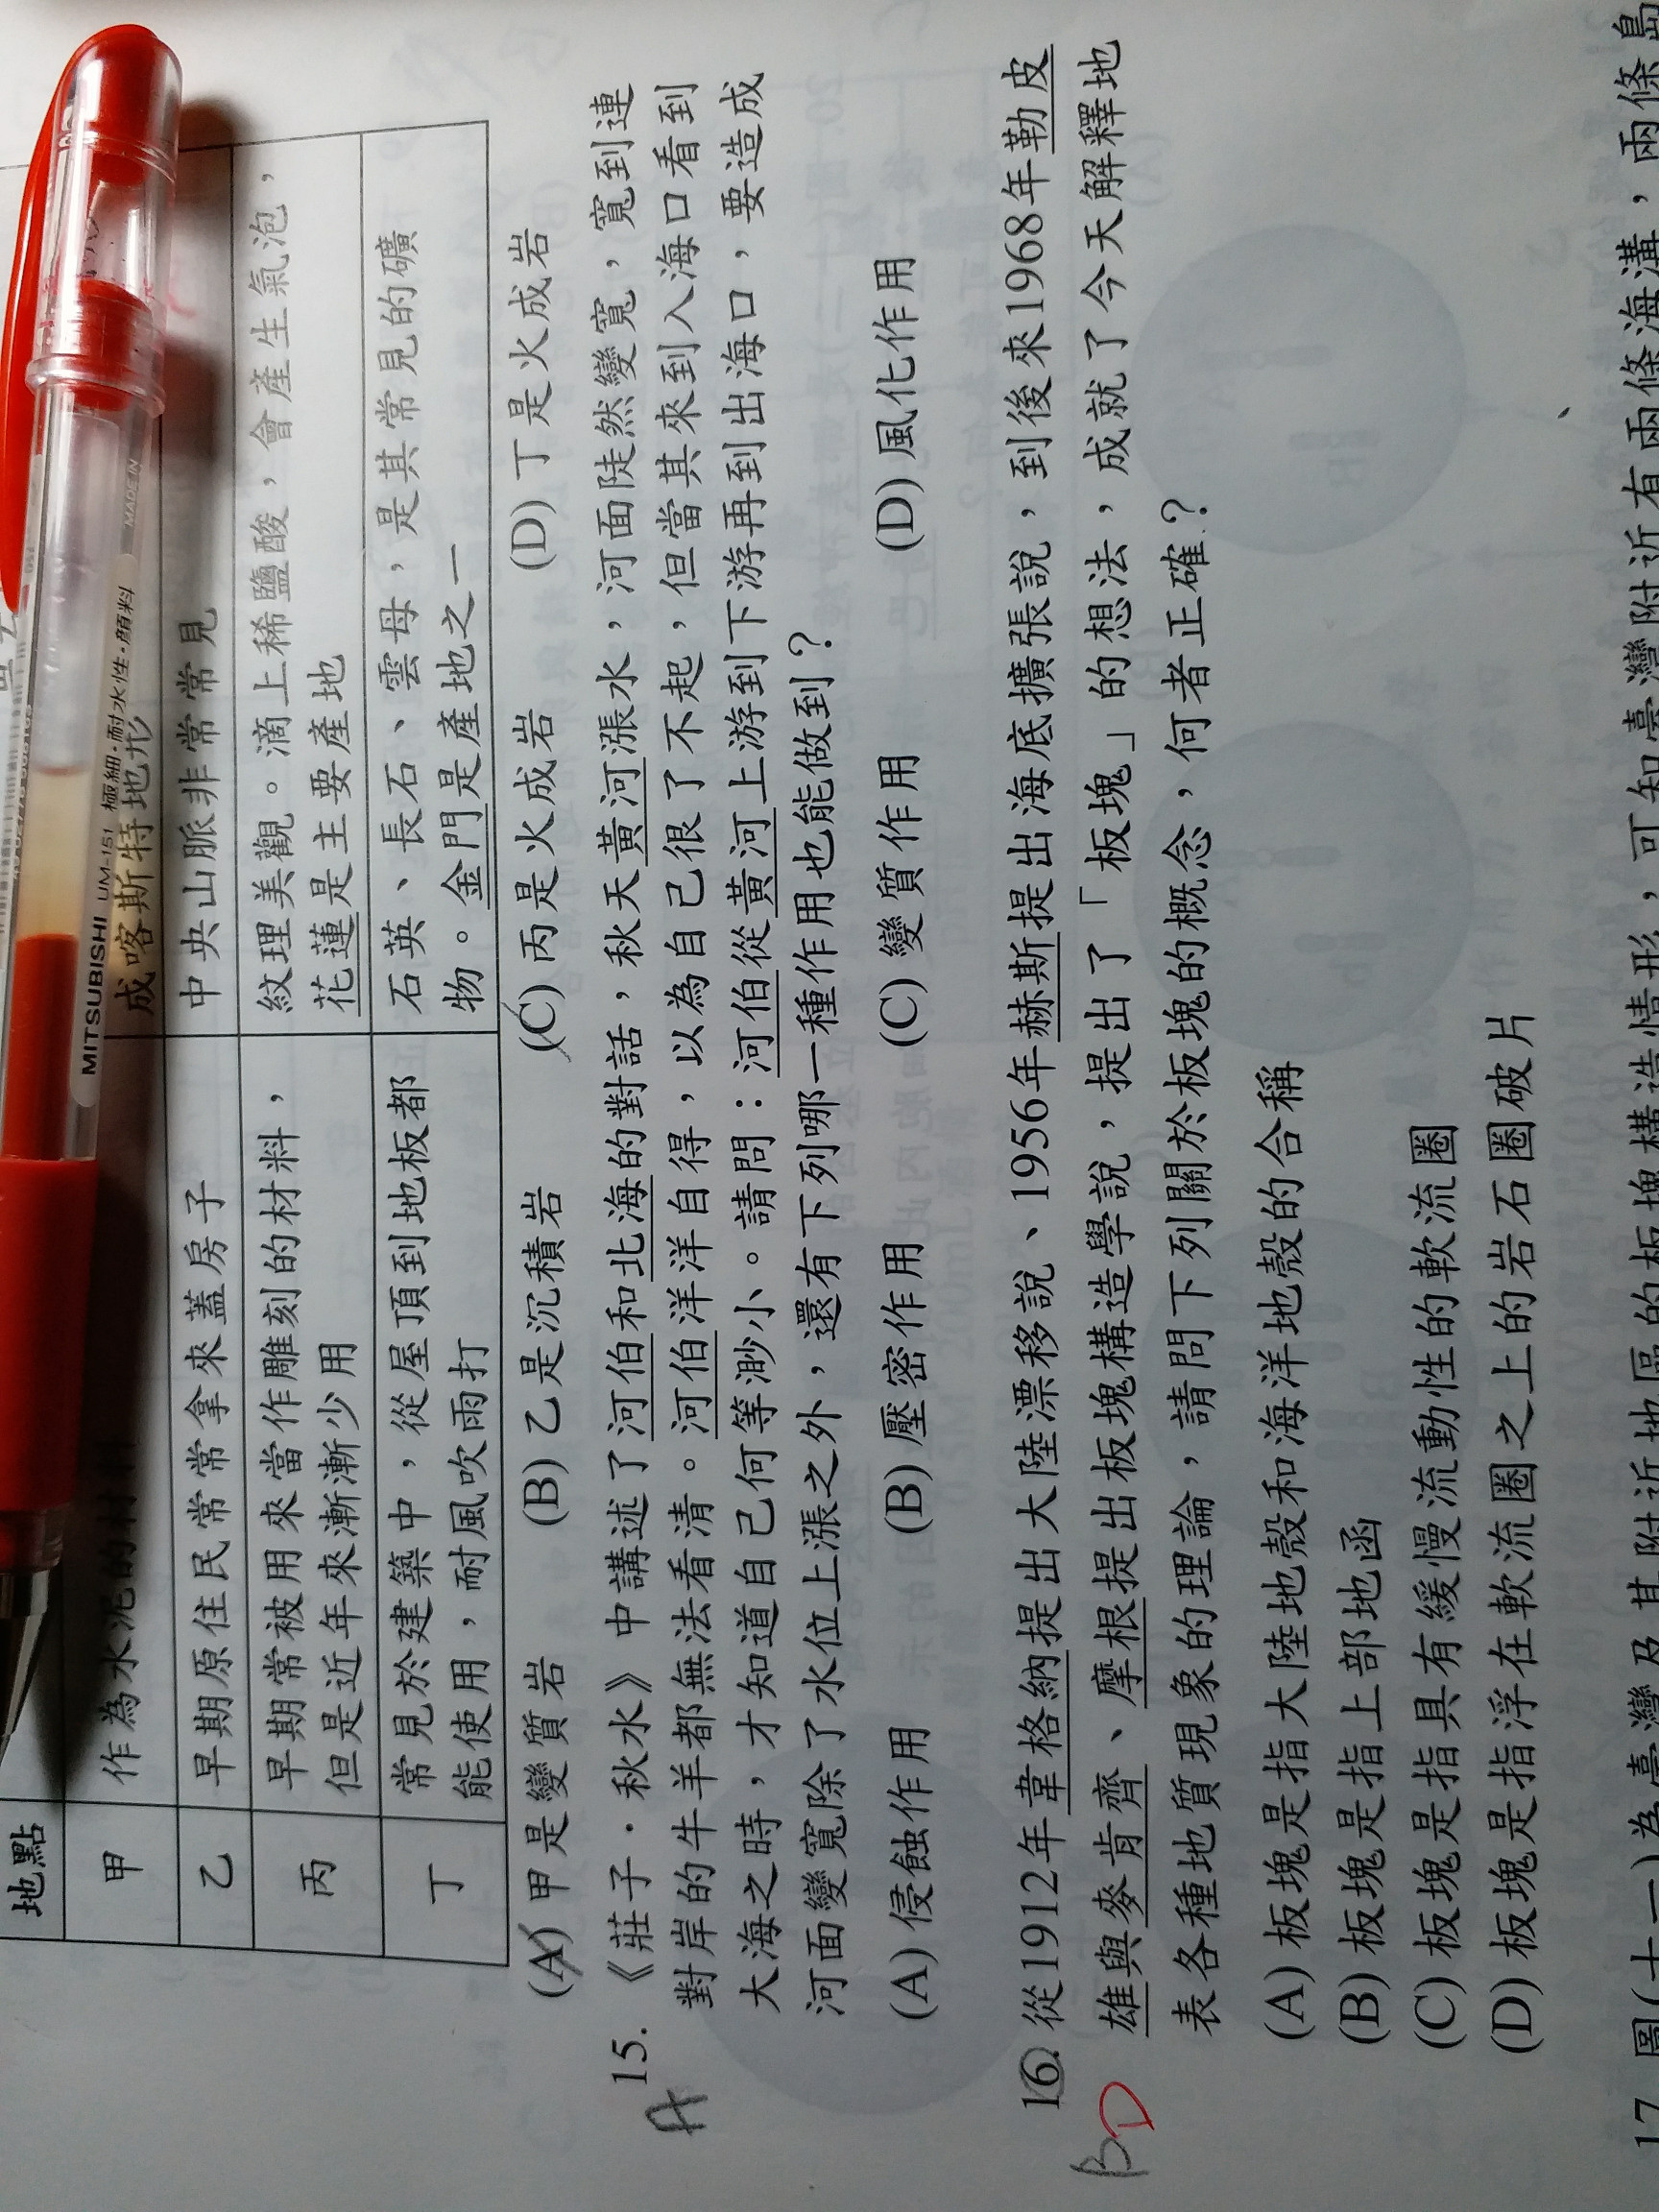 MITSUBISHI UM-151 極細・耐水性・顔料 MADE IN
地點
甲 作為水泥的材料 成喀斯特地形
乙 早期原住民常常拿來蓋房子 中央山脈非常常見
丙 早期常被用來當作雕刻的材料, 紋理美觀。滴上稀鹽酸,會產生氣泡,
但是近年來漸漸少用 花蓮是主要產地
丁 常見於建築中,從屋頂到地板都 石英、長石、雲母,是其常見的礦
能使用,耐風吹雨打 物。金門是產地之一
(A) 甲是變質岩 (B) 乙是沉積岩 (C) 丙是火成岩 (D) 丁是火成岩
A 15. 《莊子·秋水》中講述了河伯和北海的對話,秋天黃河漲水,河面陡然變寬,寬到連
對岸的牛羊都無法看清。河伯洋洋自得,以為自己很了不起,但當其來到入海口看到
大海之時,才知道自己何等渺小。請問:河伯從黃河上游到下游再到出海口,要造成
河面變寬除了水位上漲之外,還有下列哪一種作用也能做到?
(A) 侵蝕作用 (B) 壓密作用 (C) 變質作用 (D) 風化作用
BD 16. 從1912年韋格納提出大陸漂移說、1956年赫斯提出海底擴張說,到後來1968年勒皮
雄與麥肯齊、摩根提出板塊構造學說,提出了「板塊」的想法,成就了今天解釋地
表各種地質現象的理論,請問下列關於板塊的概念,何者正確?
(A) 板塊是指大陸地殼和海洋地殼的合稱
(B) 板塊是指上部地函
(C) 板塊是指具有緩慢流動性的軟流圈
(D) 板塊是指浮在軟流圈之上的岩石圈破片
17. 圖(十一)為臺灣及其附近地區的板塊構造情形,可知臺灣附近有兩條海溝,兩條島